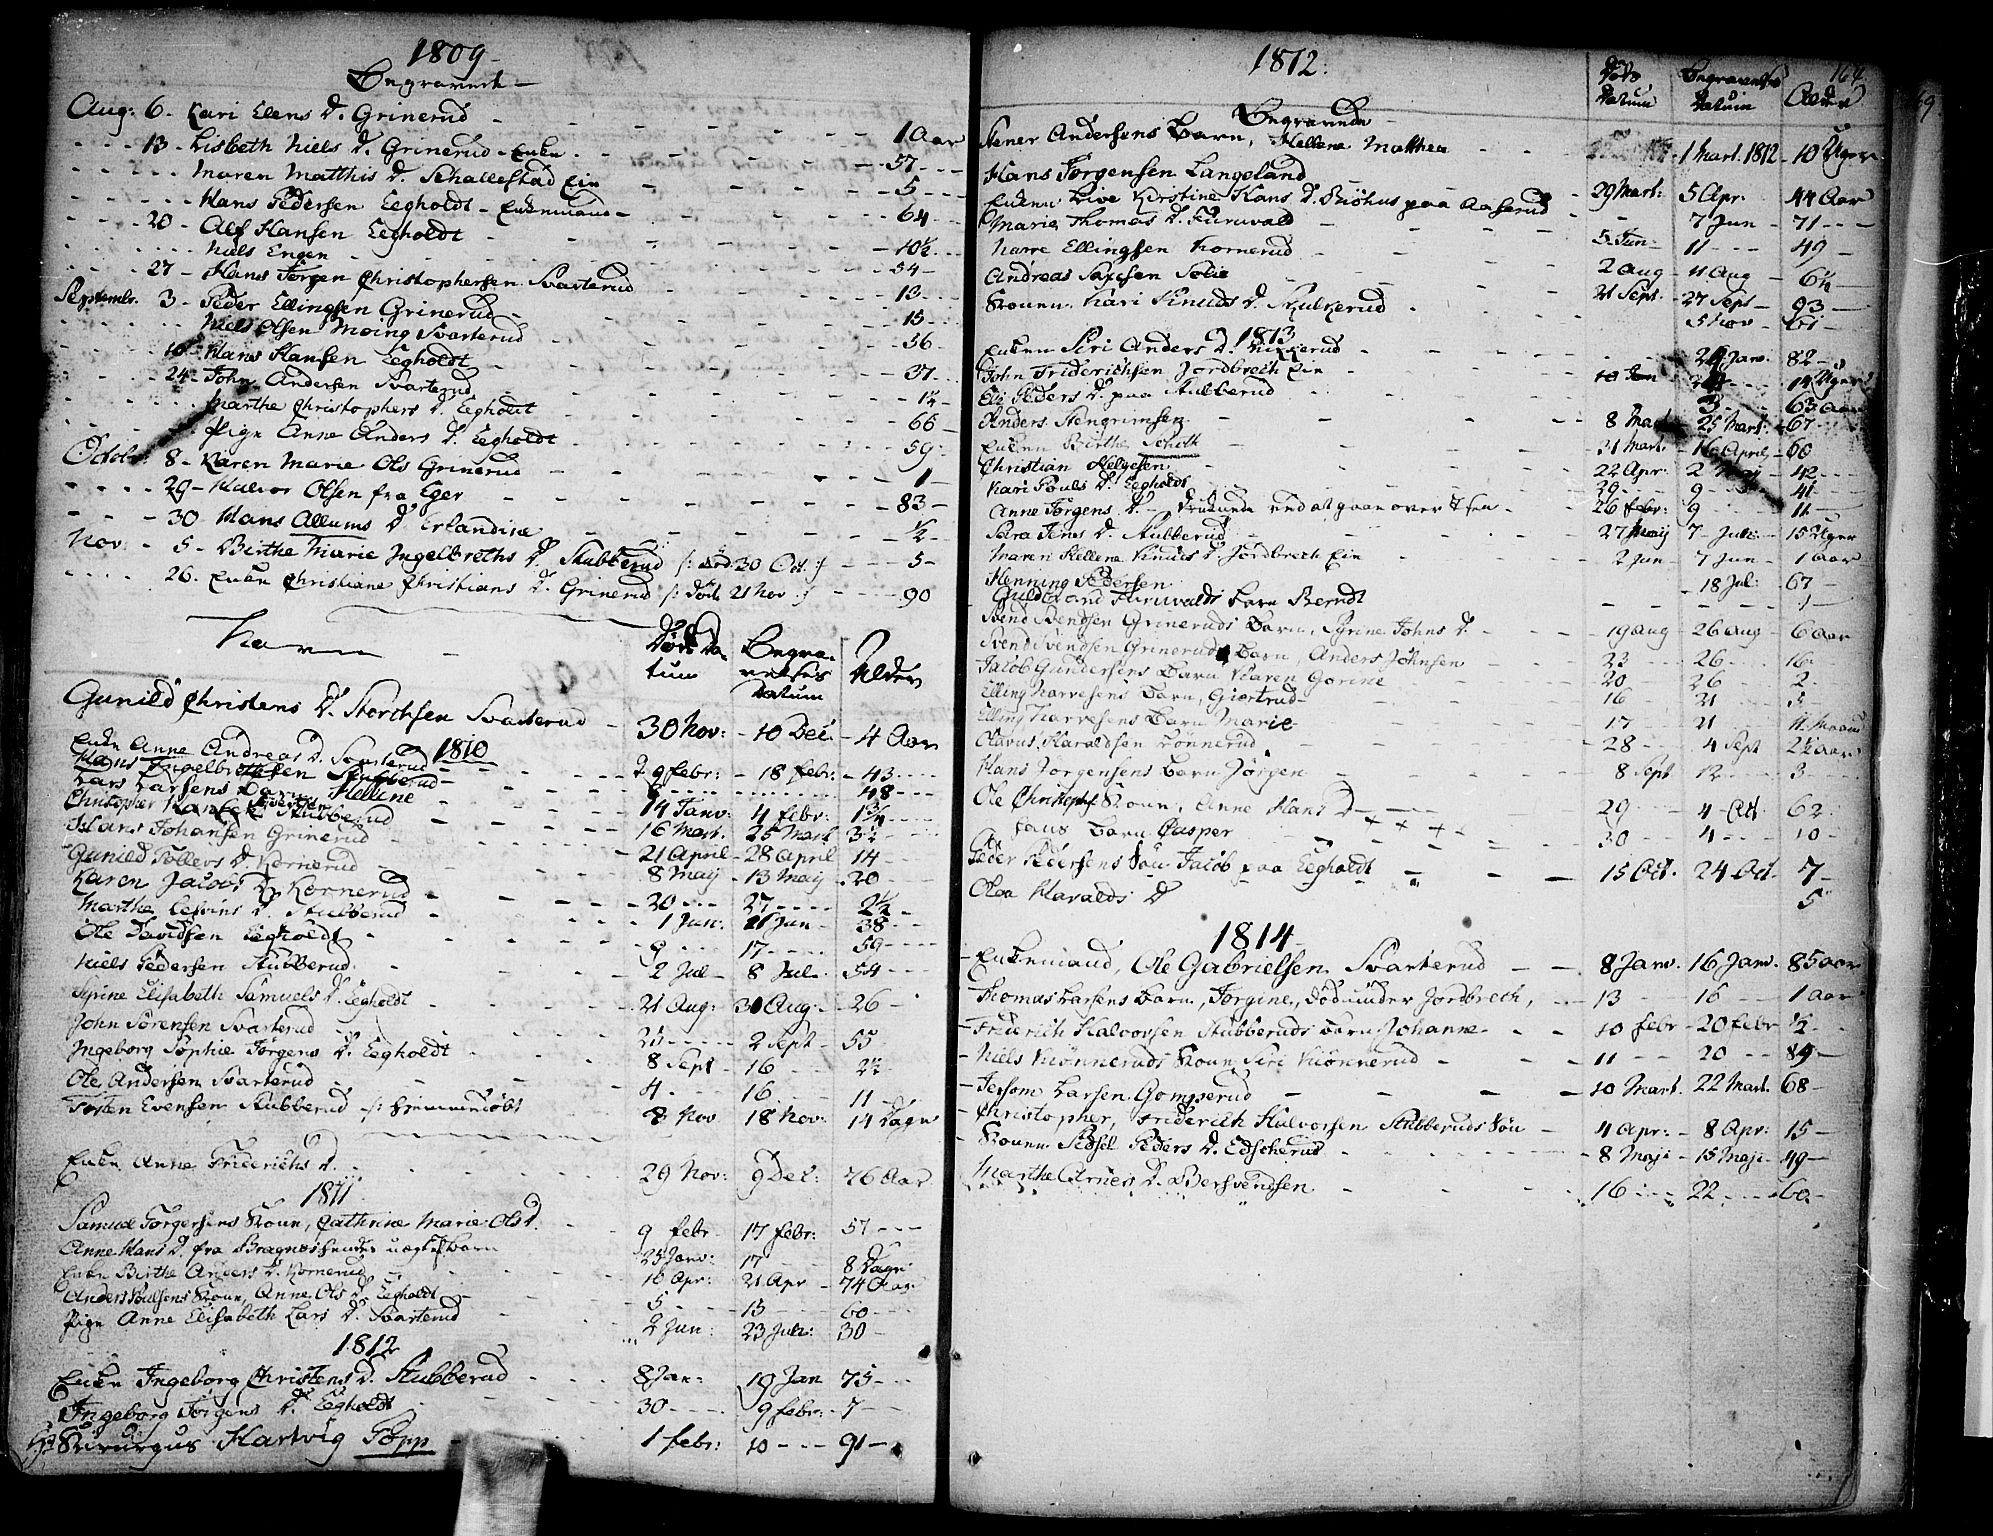 1809
Begravede
Aug: 6. Kari Elens D. Grinerud - 1 Aar
13. Lisbeth Niels D. Grinerud - Enke - 57
Maren Matthis D. Schallestad Ein - 5
Hans Pedersen Eegholdt - Enkemand - 64
20 - Alf Hansen Eegholdt - 10½
Niels Engen - 54
27 - Hans Jørgen Christophersen Svarterud - 13
Septembr. 3 - Peder Ellingsen Grinerud - 15
Niels Olsen Moing Svarterud - 56
10 - Hans Hansen Eegholdt - 37
24 - John Andersen Svarterud - 1½
Marthe Christophers D. Eegholdt - 66
Pige Anne Anders D. Eegholdt - 59
Octobr: 8 - Karen Marie Ols Grinerud - 1
29 - Halvor Olsen fra Eger - 83
30 - Hans Allums D. Erlandine - ½
Nov: 5 - Birthe Marie Ingelbreths D. Stubberud /: død 30 Oct. :/ - 5
26. Enke Christiane Christians D. Grinerud /: Død 21 Nov :/ - 90
Navn Døds Datum Begravelses Datum Alder
Gunild Christens D. Storchsen Svarterud - 30 Nov: - 10 Dec. - 4 Aar
1810
Enke Anne Andreas D. Svarterud 9 febr: - 18 febr: - 43
Hans Ingelbrethsen Stubberud 48
Lars Larsens Barn Hellene 14 Janv: 4 febr: 1¾
Christopher Stubberud 16 Mart. 25 Mart 3½
Hans Johansen Grinerud 21 April - 28 April 14
Gunild Tollevs D. Kornerud 8 Maij - 13 Maij - 20
Karen Jacobs D. Kornerud 20 27 2½
Marthe D. Stubberud 1 Jun: 11 Jun 38
Ole Davidsen Eegholdt 9 17 59
Niels Pedersen Stubberud 2 Jul 8 Jul 54
Sirine Elisabeth Samuels D. Eegholdt 21 Aug: 30 Aug: 26
John Sørensen Svarterud 25 2 Sept 55
Ingeborg Sophie Jørgens D. Eegholdt 8 Sept 16 2½
Ole Andersen Svarterud 4 16 11
Torsten Evensen Stubberud /: hjemmedøbt 8 Nov 18 Nov: 14 Dage
Enke Anne Friderichs D. 29 Nov: 9 Dec: 76 Aar
1811
Samuel Torgersens Kone, Cathrine Marie Ols D. 9 febr 17 febr: 57
Anne Hans D. fra Bragnæs uægte Barn 25 Janv: 17 8 Dage
Enke Birthe Anders D. Kornerud 16 Apr: 21 Apr 74 Aar
Anders Poulsens Kone, Anne Ols D. Eegholdt 5 13 60
Pige Anne Elisabeth Lars D. Svarterud 2 Jun: 23 Jul: 30
1812
Enke Ingeborg Christens D. Stubberud 8 Jan: 19 Jan 75
Ingeborg Jørgens D. Eegholdt 30 9 febr: 7
Hr Kirurgus Hartvig Topp 1 febr: 10 91
1812: Døds Datum Begravelses Datum Alder 164
Begravede
Stener Andersens Barn, Hellene Mathea 1 Mart. 1812 - 10 Uger
Hans Jørgensen Langeland 29 Mart: 5 Apr. 44 Aar
Enken Live Kirstine Hans D. Brøhus paa Aaserud 7 Jun 71
Marie Thomas D. Furuvald 5 Jun 11 49
Narve Ellingsen Kornerud 2 Aug 11 Aug 6½
Andreas Solie 21 Sept. 27 Sept 93
Konen Kari Knuds D. Skulkerud 5 Nov 61
1813
Enken Siri Anders D. 24 Janv. 82
John Friderichsen Jordbrech Ein 10 Jan 14 Uger
Eli Peders D. paa Stubberud 3 63 Aar
Anders Stengrimsen 8 Mart 25 Mart: 67
Enken Birthe Scholt 31 Mart. 16 April 60
Christian Helgesen 22 Apr: 2 Maij 42
Kari Pouls D. Eegholdt 29 9 41
Anne Jørgens D. Druknede ved at gaae over 26 febr: 9 11
Sara Jens D. Stubberud 27 Maij 7 Juli 15 Uger
Maren Hellene Knuds D. Jordbrech Ein 2 Jun 7 Jun 1 Aar
Henning Pedersen 18 Jul: 67
Guldbrand Furuvalds Barn Berndt 1
Svend Svendsen Grineruds Barn, Sirine Johns D. 19 Aug 26 Aug 6 Aar
Svend Svendsen Grineruds Barn, Anders Johnsen 23 26 16
Jacob Gundersens Barn Karen Gorine 20 26 2
Elling Narvesens Barn, Giertrud 16 21 3
Elling Narvesens Barn Marie 17 21 11 Maaned
Olavus Haraldsen Rønnerud 28 4 Sept 2½ Aar
Hans Jørgensens Barn Jørgen 8 Sept 12 3
Ole Christophs Kone, Anne Hans D 29 4 Oct 62
Barn Casper 30 4 10
Peder Pedersens Søn Jacob paa Eegholdt 15 Oct. 24 Oct 7
Olea Haralds D 5
1814
Enkemand, Ole Gabrielsen Svarterud 8 Janv. 16 Janv. 85 aar
Thomas Larsens Barn, Jørgine, Død under Jordbrech, 13 16 1 Aar
Friderich Halvorsen Stubberuds Barn Johanne 10 febr 20 febr ½
Niels Kiønneruds Kone Siri Kiønnerud 11 20 89
Jersom Larsen Gomperud 10 Mart. 22 Mart. 68
Christopher, Friderich Halvorsen Stubberuds Søn 4 Apr: 8 Apr: 15
Konen Sidsel Peders D. Edscherud 8 Maji 15 Maji 49
Marthe Arnes D. Bersvendsen 16 22 60